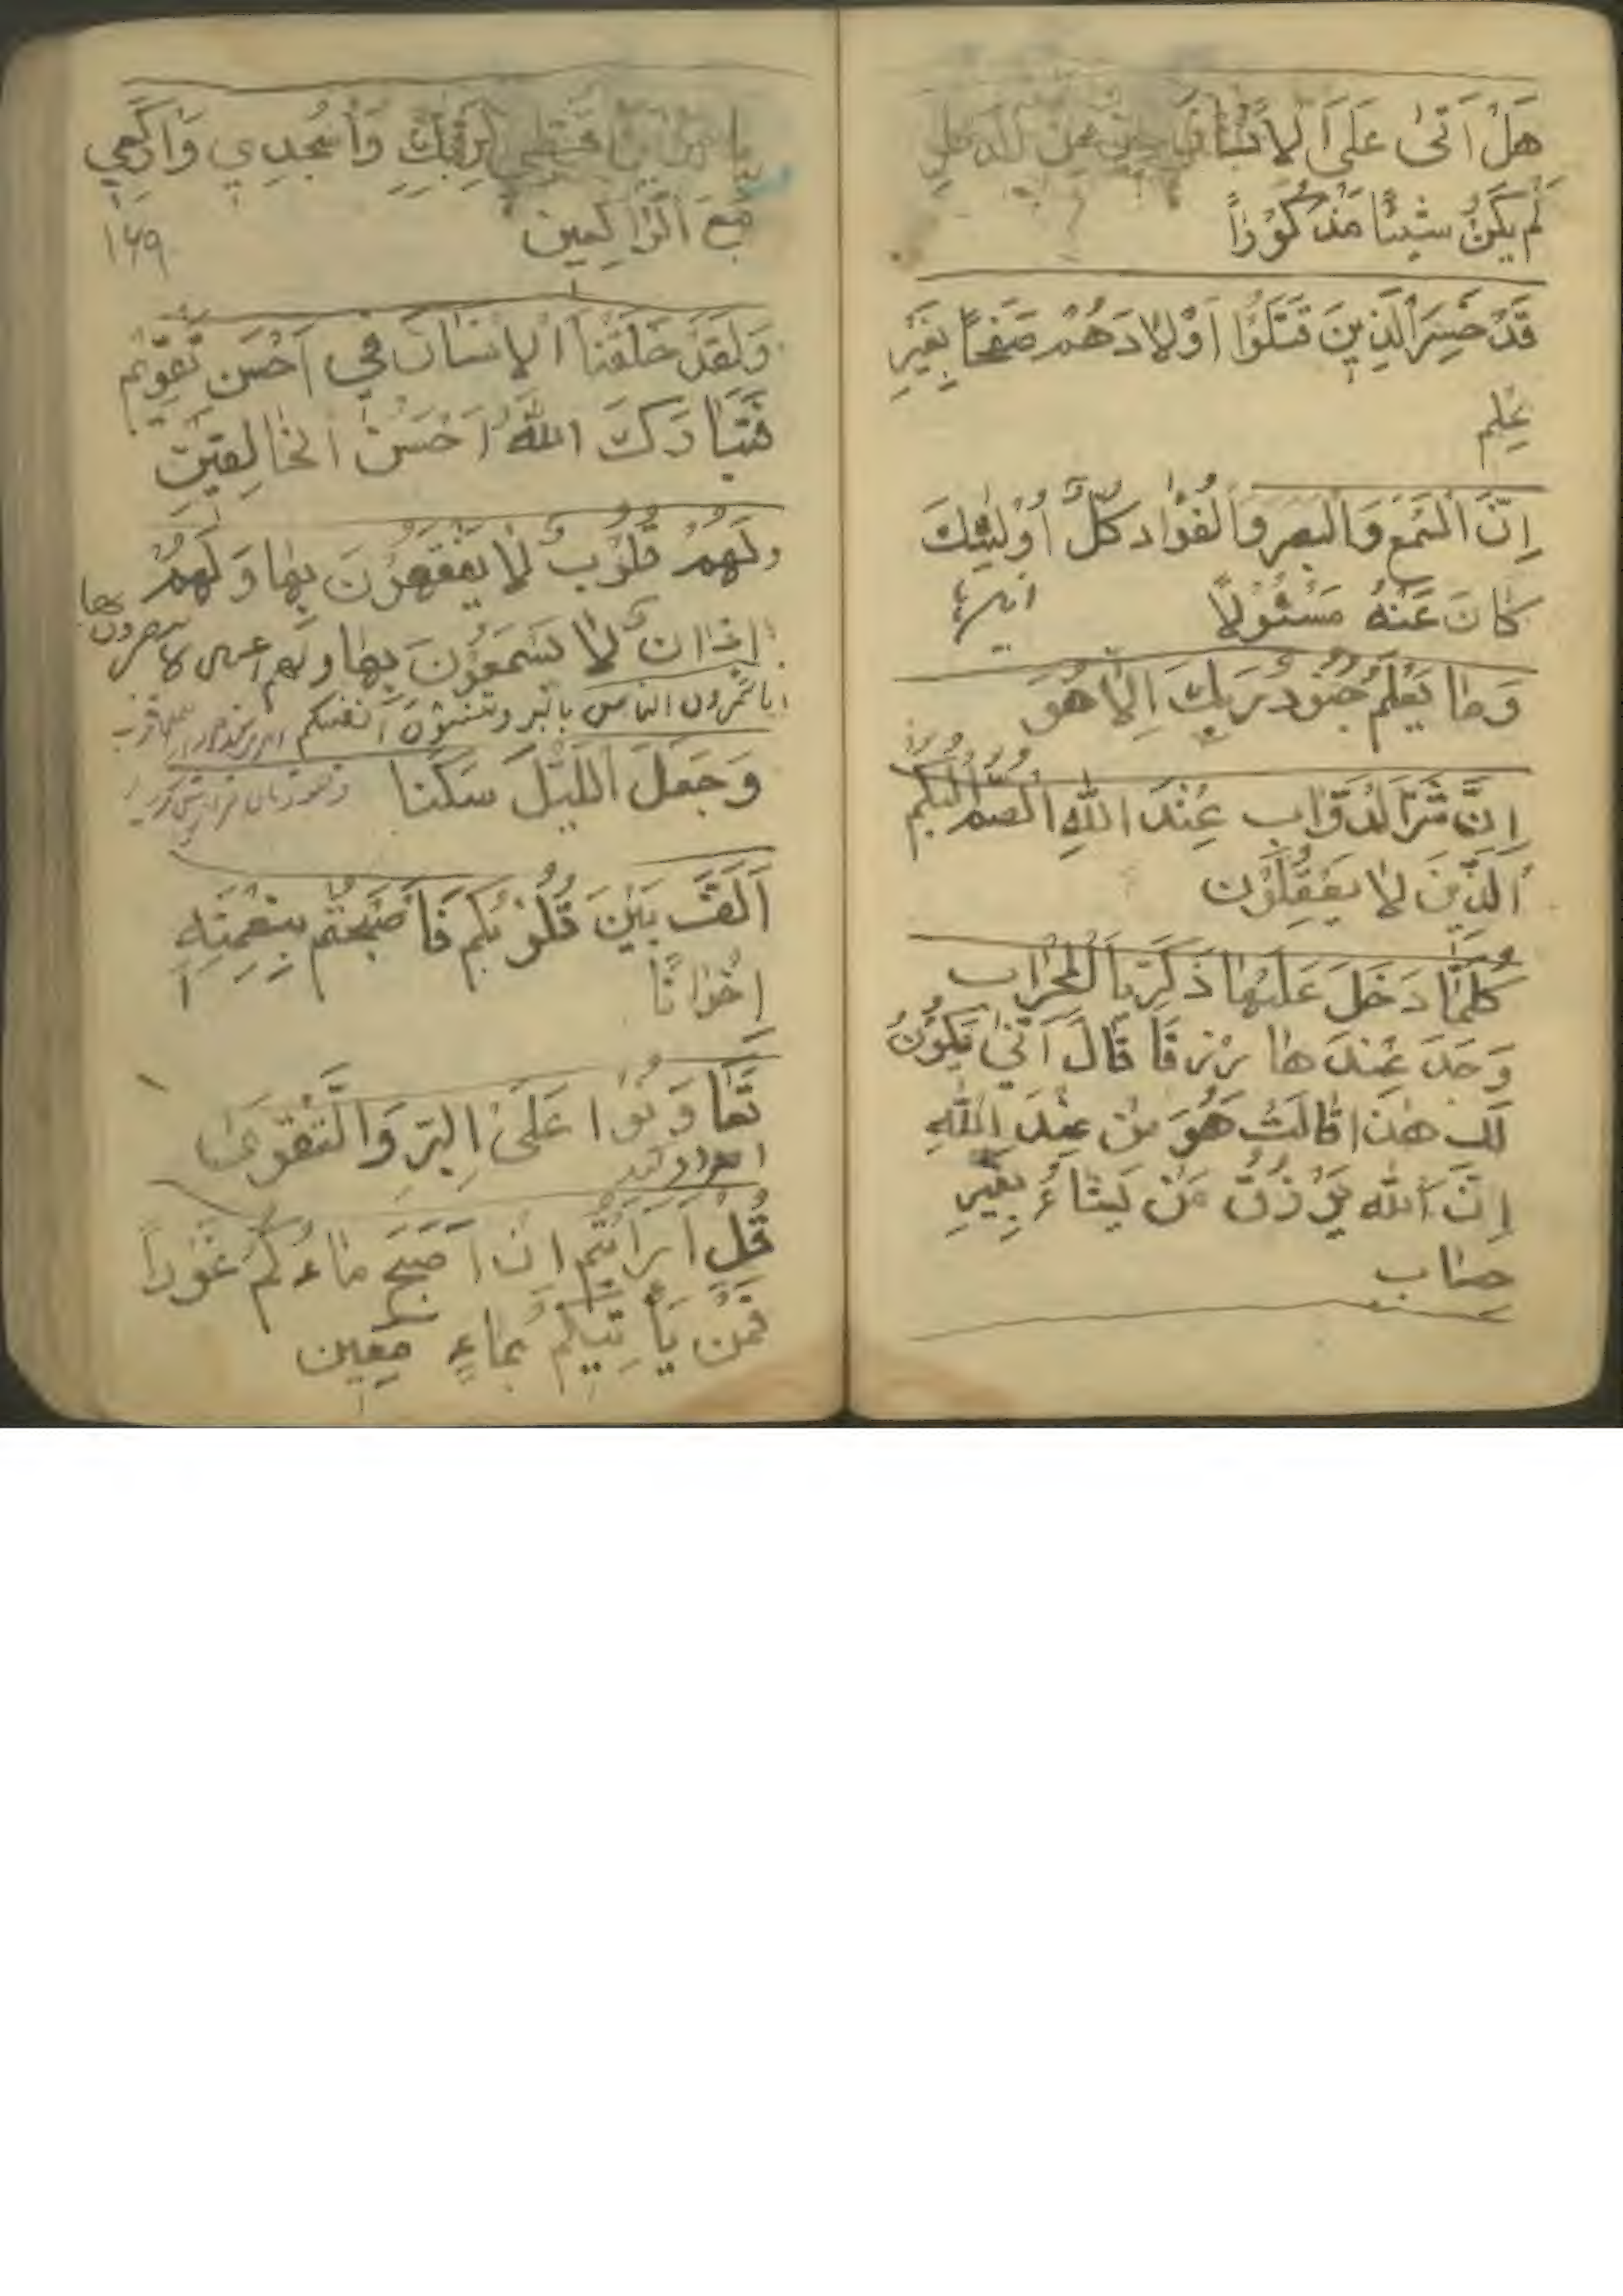 هَلْ اَتىٰ عَلَى الاِنْسٰانِ حينٌ مِنَ الدَهرِ
لَم يَكُنْ شَيئًا مَذْكُوْراً
قَدْ خَسِرَ الَّذِينَ قَتَلُوْا اَوْلادَهُمْ صَفَحًا بِغَيْرِ
عِلم
اِنَّ السَّمْعَ وَالبصر وَالْفُوْاد كُلُّ اُوْلٰئِكَ
كٰانَ عَنْهُ مَسْئُوْلاً
وَمٰا يَعْلَمُ جُنُودُ رَبِكَ اِلاّٰ هُوَ
اِنَّ شَرَّ الْدَوّٰابِ عِنْدَ اللهِ الصُمُّ البُكْمُ
اَلَّذِيْنَ لاٰ يَعْقِلُوْن
كُلَّمٰا دَخَلَ عَلَيْهٰا ذَكَرِيّٰا الْمِحْرٰاب
وَجَدَ عِنْدَ هٰا رِزقًا قٰالَ اَنّٰى يَكُوْنُ
لَكِ هٰذٰا قٰالَتْ هُوَ مِنْ عِنْدِ اللّٰهِ
اِنَّ اَللّٰه يَرْزُقُ مَنْ يَشٰاءُ بِغَيْرِ
حسٰاب
يا اقْنُتي لِرَبِّكِ وَاسْجُدِي وَارْكَعِي
مَعَ الرّٰاكِعين
١٦٩
وَلَقَدْ خَلَقْنٰا الاِنْسٰانَ فِي اَحْسَنِ تَقْوِيْم
فَتَبٰارَكَ اللّٰهُ اَحْسَنُ الخٰالِقِيْنَ
وَلَهُمْ قُلُوْبٌ لاٰ يَفْقَهُوْنَ بِهٰا وَلَهُمْ
اٰذٰانٌ لاٰ يَسْمَعُوْنَ بِهٰا ولهم اعىن لا يبصرون بها
اتامُرون الناس بالبر وتَنْسَوْنَ اَنفسكم
وَجَعَلَ اَللَّيْلَ سَكَنا
اَلَّفَ بَيْنَ قُلُوْبِكُم فَاَصْبَحْتُم بِنِعْمَتِهِ
اِخْوٰانًا
تَعٰاوَنُوا عَلَىْ اِلبِرِّ وَالْتَّقْوَىٰ
قُلْ اَرَاَيْتُم اِنْ اَصْبَحَ مٰاءُكُمْ غَوْراً
فَمَنْ يَأْتِيْكُمْ بِمٰاءٍ مَعِين